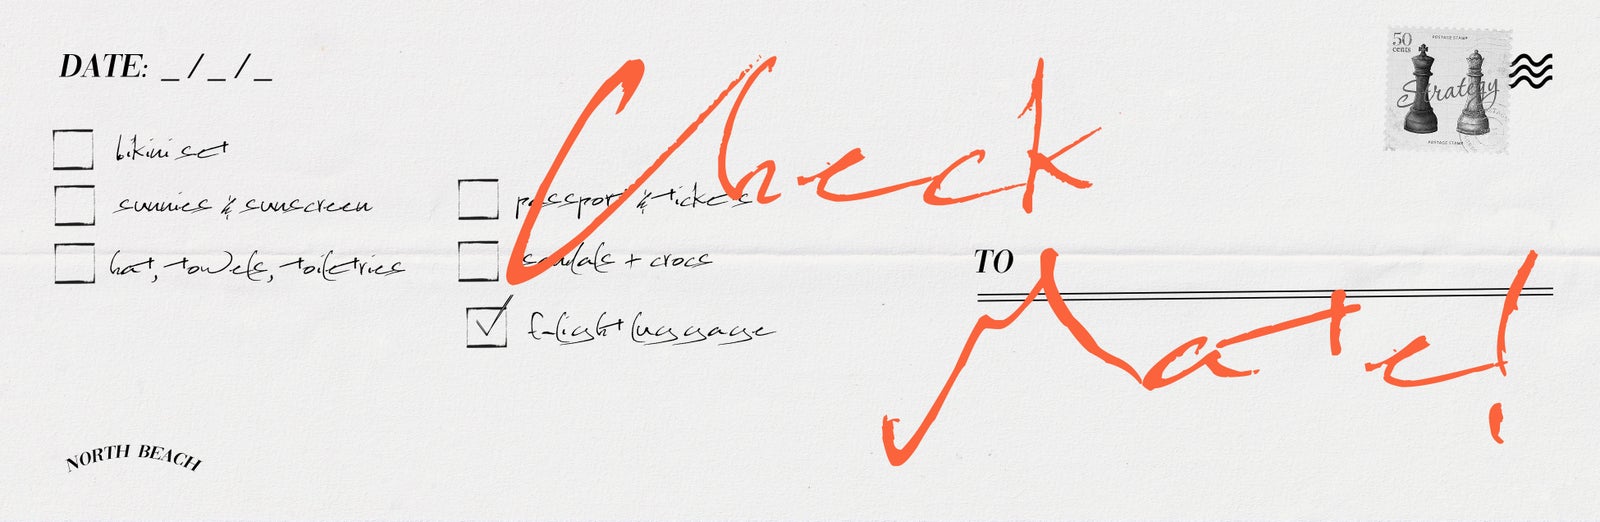 DATE: _ / _ / _
bikini set
sunnies & sunscreen
hat, towels, toiletries
passport & tickets
sandals + crocs
flight luggage
Check
Mate!
TO
50
cents
POSTAGE STAMP
Strategy
POSTAGE STAMP
NORTH BEACH